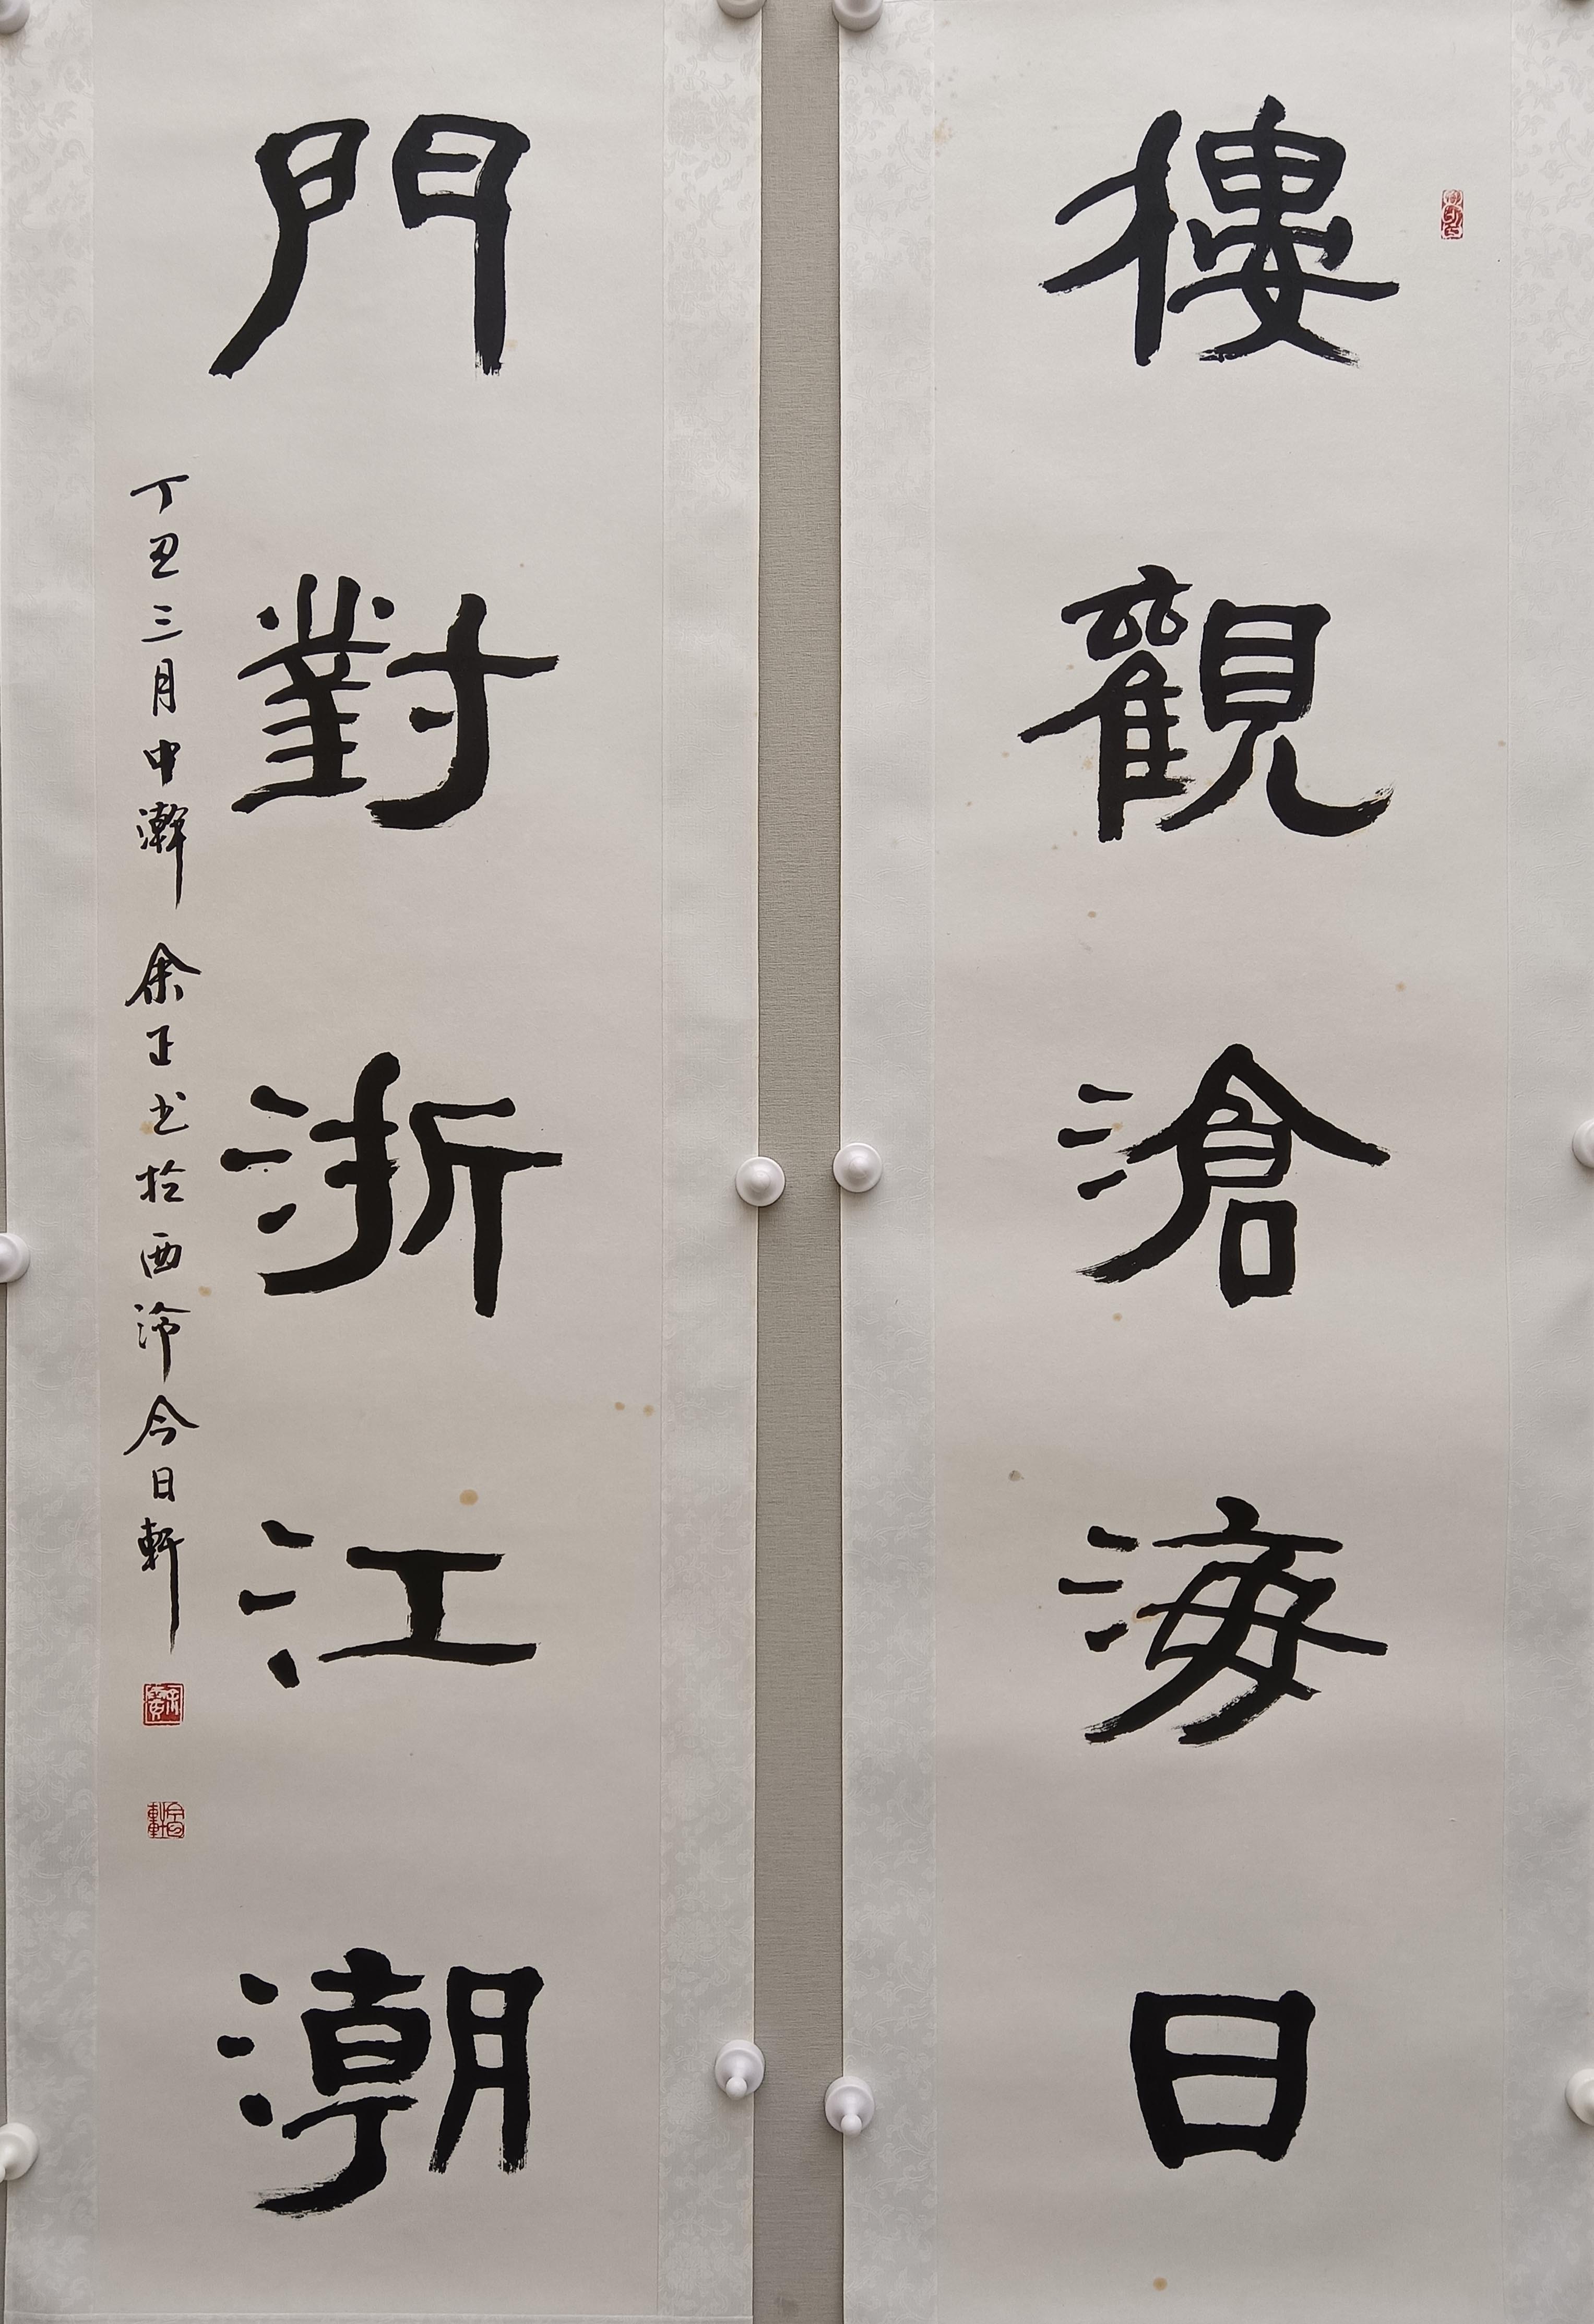 樓觀滄海日
門對浙江潮
丁丑三月中澣 余正书於西泠今日軒
今日軒